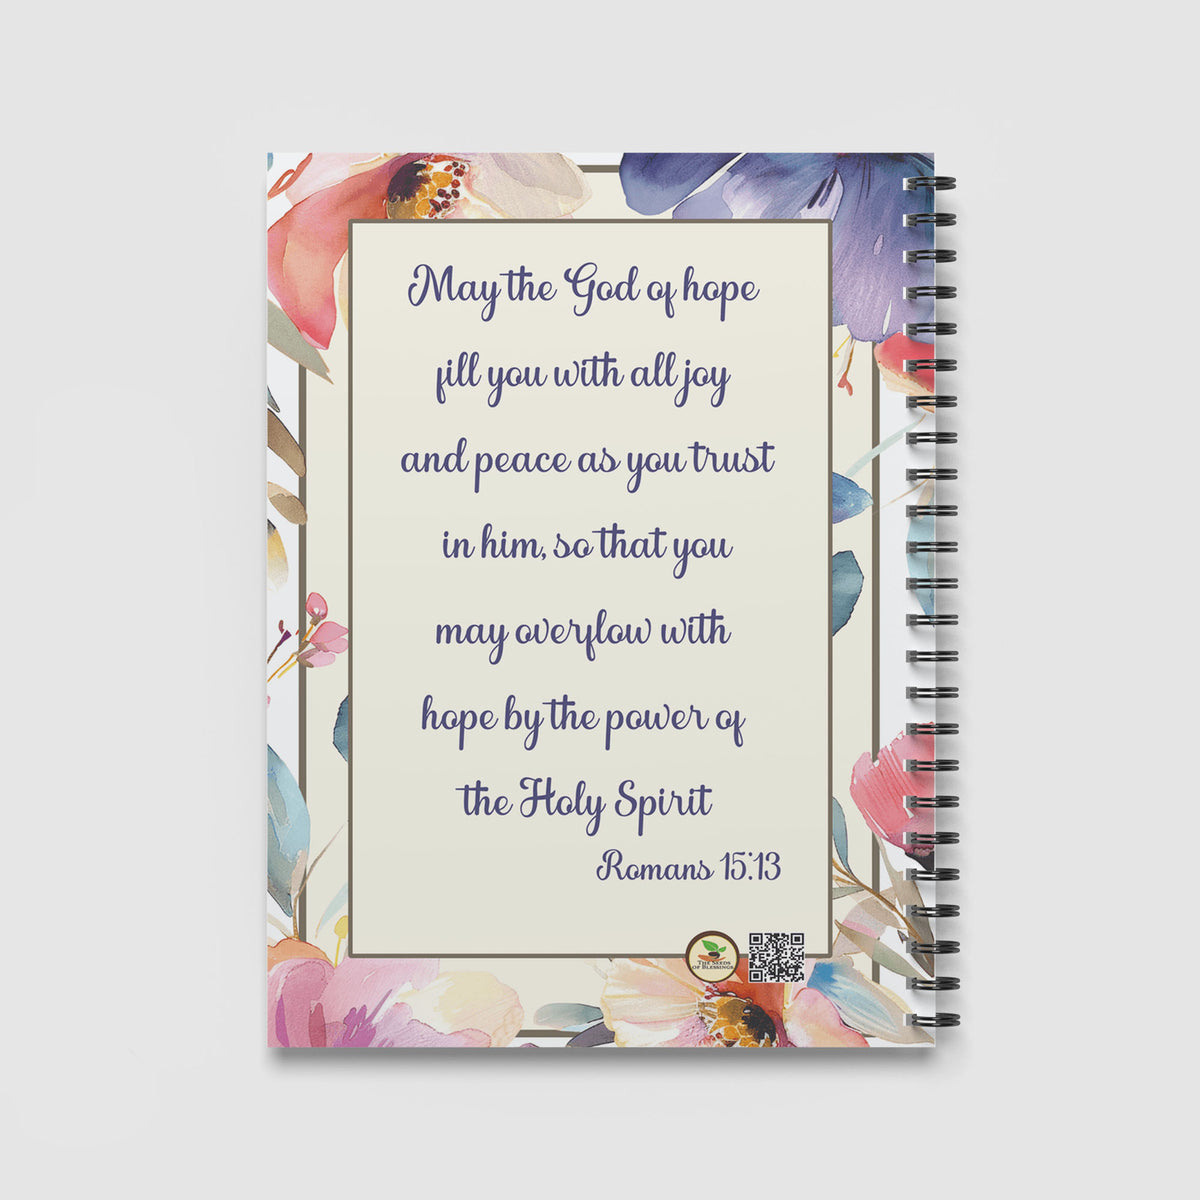 May the God of hope
fill you with all joy
and peace as you trust
in him, so that you
may overflow with
hope by the power of
the Holy Spirit
Romans 15:13
The Seeds
of Blessings